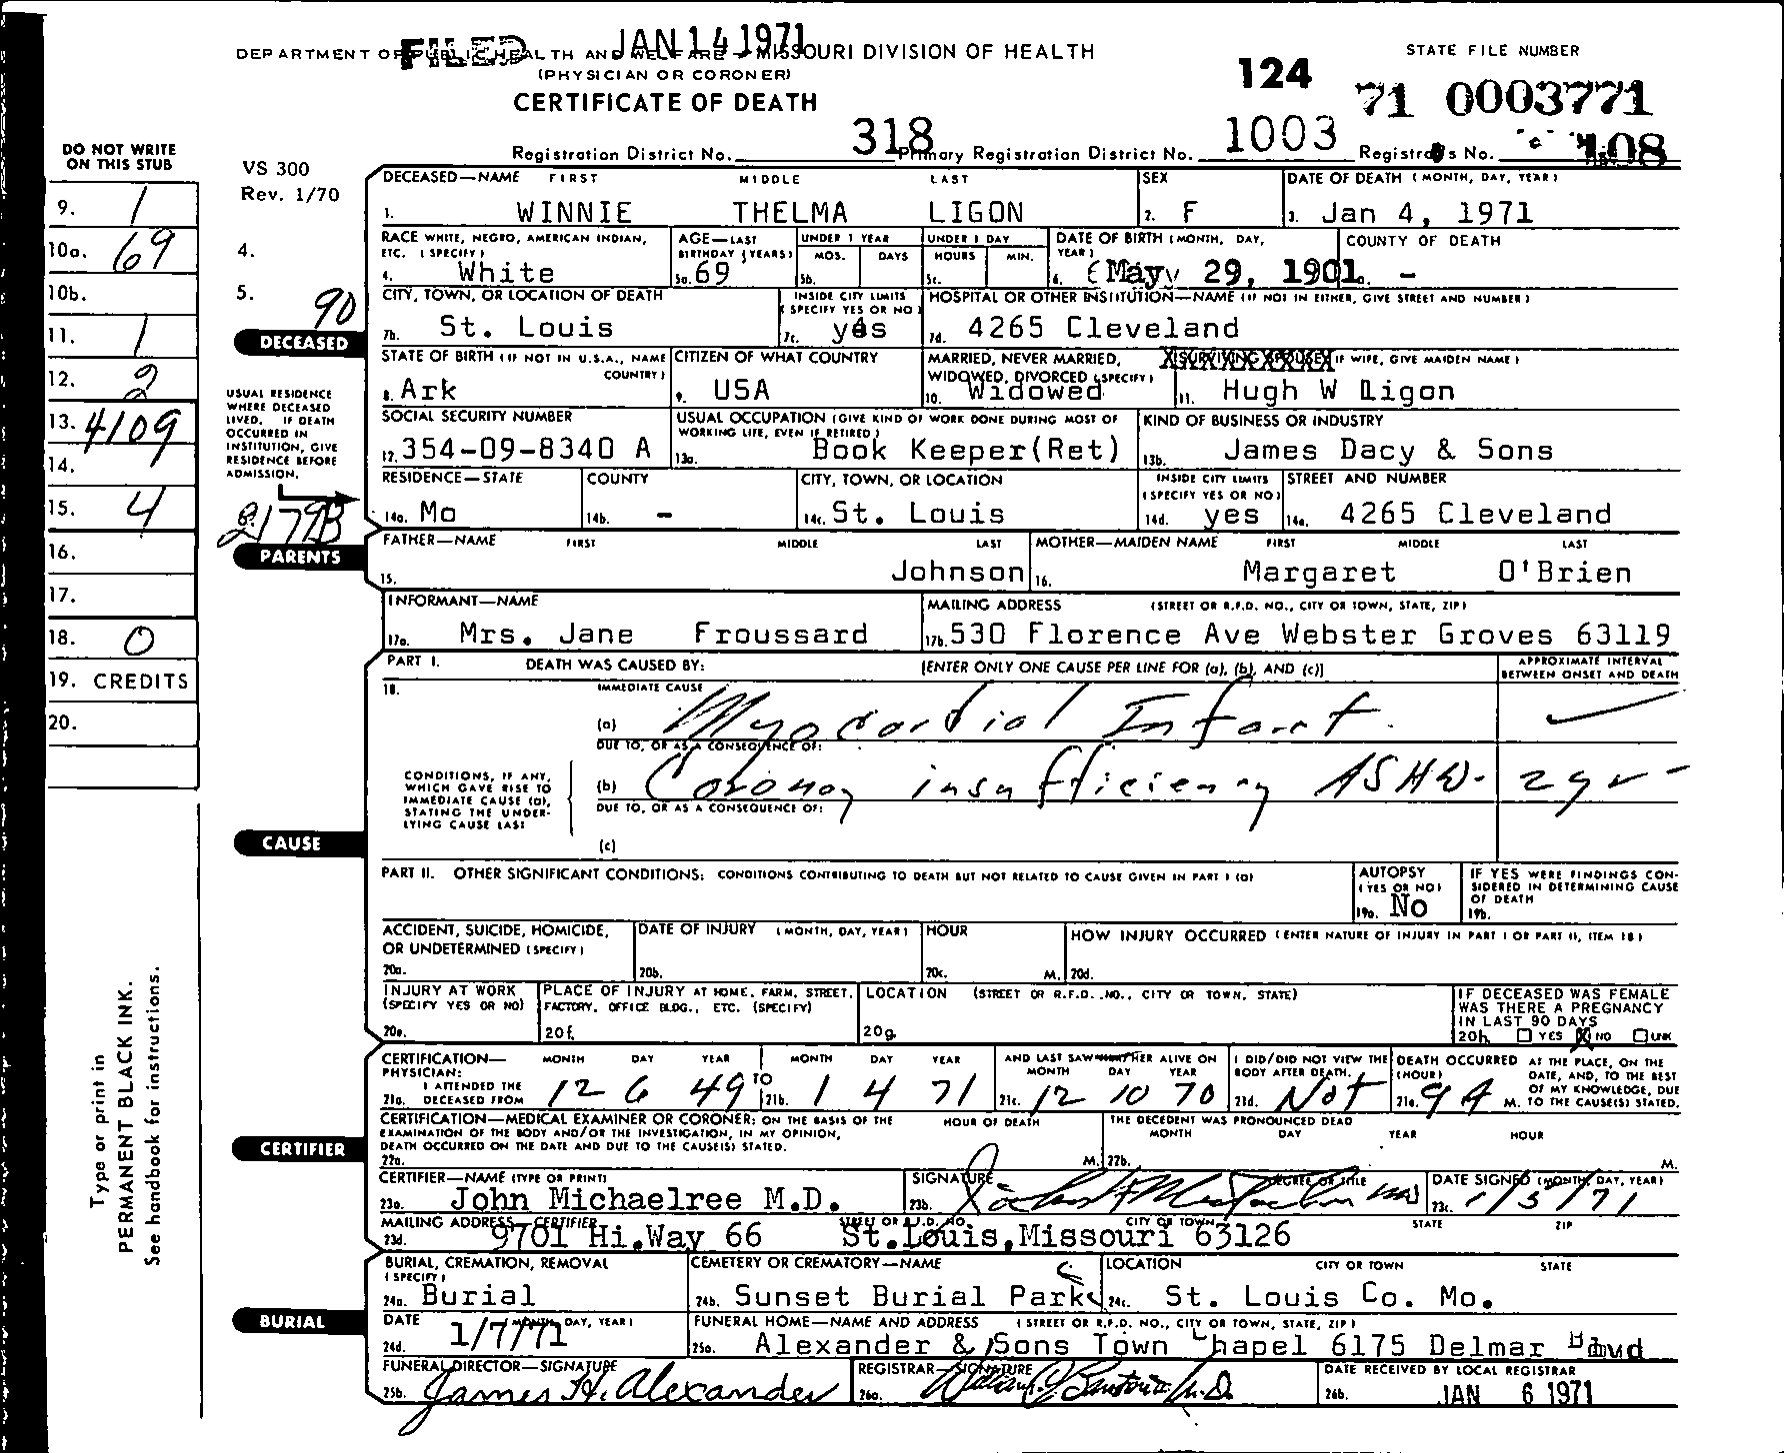 FILED JAN 14 1971
DEPARTMENT OF PUBLIC HEALTH AND WELFARE — MISSOURI DIVISION OF HEALTH
(PHYSICIAN OR CORONER)
CERTIFICATE OF DEATH
STATE FILE NUMBER
124 71 0003771
Registration District No. 318 Primary Registration District No. 1003 Registrar's No. 108
DO NOT WRITE
ON THIS STUB
VS 300
Rev. 1/70
9. 1
10a. 69
10b.
11. 1
12. 2
13. 4109
14.
15. 4
16.
17.
18. 0
19. CREDITS
20.
4.
5. 90
DECEASED
USUAL RESIDENCE
WHERE DECEASED
LIVED. IF DEATH
OCCURRED IN
INSTITUTION, GIVE
RESIDENCE BEFORE
ADMISSION.
PARENTS
DECEASED—NAME FIRST MIDDLE LAST SEX DATE OF DEATH (MONTH, DAY, YEAR)
1. WINNIE THELMA LIGON 2. F 3. Jan 4, 1971
RACE WHITE, NEGRO, AMERICAN INDIAN, AGE—LAST UNDER 1 YEAR UNDER 1 DAY DATE OF BIRTH (MONTH, DAY, COUNTY OF DEATH
ETC. (SPECIFY) BIRTHDAY (YEARS) MOS. DAYS HOURS MIN. YEAR)
4. White 5a. 69 5b. 5c. 6. May 29, 1901 -
CITY, TOWN, OR LOCATION OF DEATH INSIDE CITY LIMITS HOSPITAL OR OTHER INSTITUTION—NAME (IF NOT IN EITHER, GIVE STREET AND NUMBER)
(SPECIFY YES OR NO)
7b. St. Louis 7c. yes 7d. 4265 Cleveland
STATE OF BIRTH (IF NOT IN U.S.A., NAME CITIZEN OF WHAT COUNTRY MARRIED, NEVER MARRIED, SURVIVING SPOUSE (IF WIFE, GIVE MAIDEN NAME)
COUNTRY) WIDOWED, DIVORCED (SPECIFY)
8. Ark 9. USA 10. Widowed 11. Hugh W Ligon
SOCIAL SECURITY NUMBER USUAL OCCUPATION (GIVE KIND OF WORK DONE DURING MOST OF KIND OF BUSINESS OR INDUSTRY
WORKING LIFE, EVEN IF RETIRED)
12. 354-09-8340 A 13a. Book Keeper(Ret) 13b. James Dacy & Sons
RESIDENCE—STATE COUNTY CITY, TOWN, OR LOCATION INSIDE CITY LIMITS STREET AND NUMBER
(SPECIFY YES OR NO)
14a. Mo 14b. - 14c. St. Louis 14d. yes 14e. 4265 Cleveland
FATHER—NAME FIRST MIDDLE LAST MOTHER—MAIDEN NAME FIRST MIDDLE LAST
15. Johnson 16. Margaret O'Brien
INFORMANT—NAME MAILING ADDRESS (STREET OR R.F.D. NO., CITY OR TOWN, STATE, ZIP)
17a. Mrs. Jane Froussard 17b. 530 Florence Ave Webster Groves 63119
PART I. DEATH WAS CAUSED BY: [ENTER ONLY ONE CAUSE PER LINE FOR (a), (b), AND (c)] APPROXIMATE INTERVAL
BETWEEN ONSET AND DEATH
18. IMMEDIATE CAUSE
(a) Myocardial Infarct
DUE TO, OR AS A CONSEQUENCE OF:
CONDITIONS, IF ANY,
WHICH GAVE RISE TO
IMMEDIATE CAUSE (a),
STATING THE UNDER-
LYING CAUSE LAST
(b) Coronary insufficiency ASHD- 2 yr -
DUE TO, OR AS A CONSEQUENCE OF:
(c)
CAUSE
PART II. OTHER SIGNIFICANT CONDITIONS: CONDITIONS CONTRIBUTING TO DEATH BUT NOT RELATED TO CAUSE GIVEN IN PART I (a) AUTOPSY IF YES WERE FINDINGS CON-
(YES OR NO) SIDERED IN DETERMINING CAUSE
OF DEATH
19a. No 19b.
ACCIDENT, SUICIDE, HOMICIDE, DATE OF INJURY (MONTH, DAY, YEAR) HOUR HOW INJURY OCCURRED (ENTER NATURE OF INJURY IN PART I OR PART II, ITEM 18)
OR UNDETERMINED (SPECIFY)
20a. 20b. 20c. M. 20d.
INJURY AT WORK PLACE OF INJURY AT HOME, FARM, STREET, LOCATION (STREET OR R.F.D. NO., CITY OR TOWN, STATE) IF DECEASED WAS FEMALE
(SPECIFY YES OR NO) FACTORY, OFFICE BLDG., ETC. (SPECIFY) WAS THERE A PREGNANCY
IN LAST 90 DAYS
20e. 20f. 20g. 20h. YES X NO UNK
CERTIFICATION— MONTH DAY YEAR MONTH DAY YEAR AND LAST SAW HER ALIVE ON I DID/DID NOT VIEW THE DEATH OCCURRED AT THE PLACE, ON THE
PHYSICIAN: MONTH DAY YEAR BODY AFTER DEATH. (HOUR) DATE, AND, TO THE BEST
I ATTENDED THE OF MY KNOWLEDGE, DUE
21a. DECEASED FROM 12 6 49 TO 21b. 1 4 71 21c. 12 10 70 21d. Not 21e. 9 A M. TO THE CAUSE(S) STATED.
CERTIFICATION—MEDICAL EXAMINER OR CORONER: ON THE BASIS OF THE HOUR OF DEATH THE DECEDENT WAS PRONOUNCED DEAD
EXAMINATION OF THE BODY AND/OR THE INVESTIGATION, IN MY OPINION, MONTH DAY YEAR HOUR
DEATH OCCURRED ON THE DATE AND DUE TO THE CAUSE(S) STATED.
22a. M. 22b. M.
CERTIFIER
CERTIFIER—NAME (TYPE OR PRINT) SIGNATURE DEGREE OR TITLE DATE SIGNED (MONTH, DAY, YEAR)
23a. John Michaelree M.D. 23b. 23c. 1/5/71
MAILING ADDRESS—CERTIFIER STREET OR R.F.D. NO. CITY OR TOWN STATE ZIP
23d. 9701 Hi.Way 66 St.Louis,Missouri 63126
BURIAL, CREMATION, REMOVAL CEMETERY OR CREMATORY—NAME LOCATION CITY OR TOWN STATE
(SPECIFY)
24a. Burial 24b. Sunset Burial Park 24c. St. Louis Co. Mo.
BURIAL
DATE (MONTH, DAY, YEAR) FUNERAL HOME—NAME AND ADDRESS (STREET OR R.F.D. NO., CITY OR TOWN, STATE, ZIP)
24d. 1/7/71 25a. Alexander & Sons Town Chapel 6175 Delmar Blvd
FUNERAL DIRECTOR—SIGNATURE REGISTRAR—SIGNATURE DATE RECEIVED BY LOCAL REGISTRAR
25b. James H. Alexander 26a. 26b. JAN 6 1971
Type or print in
PERMANENT BLACK INK.
See handbook for instructions.